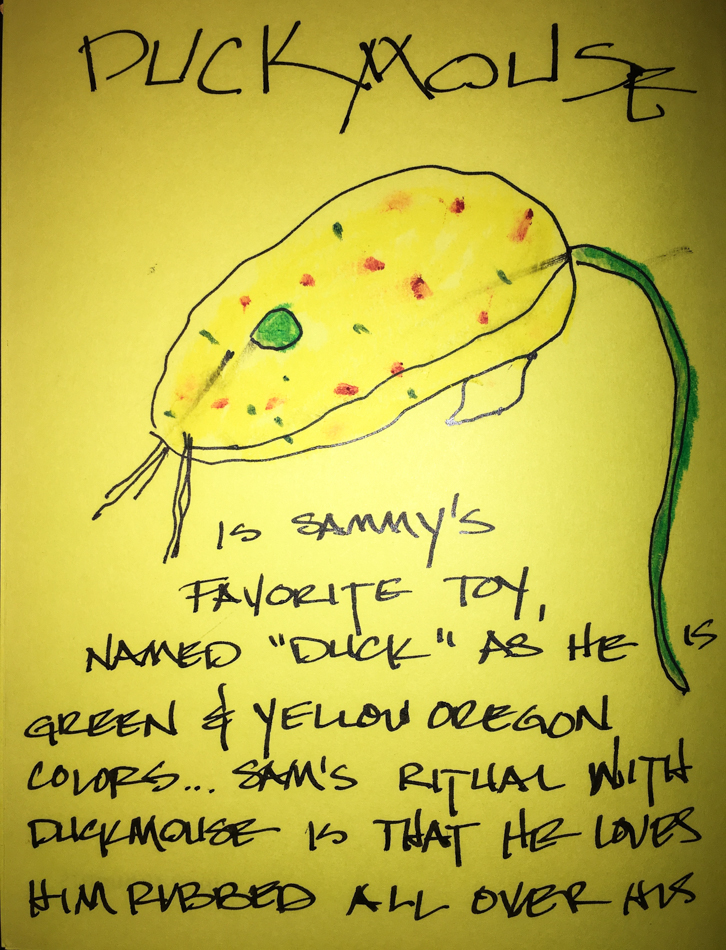 DUCKMOUSE
IS SAMMY'S
FAVORITE TOY,
NAMED "DUCK" AS HE IS
GREEN & YELLOW OREGON
COLORS... SAM'S RITUAL WITH
DUCKMOUSE IS THAT HE LOVES
HIM RUBBED ALL OVER HIS